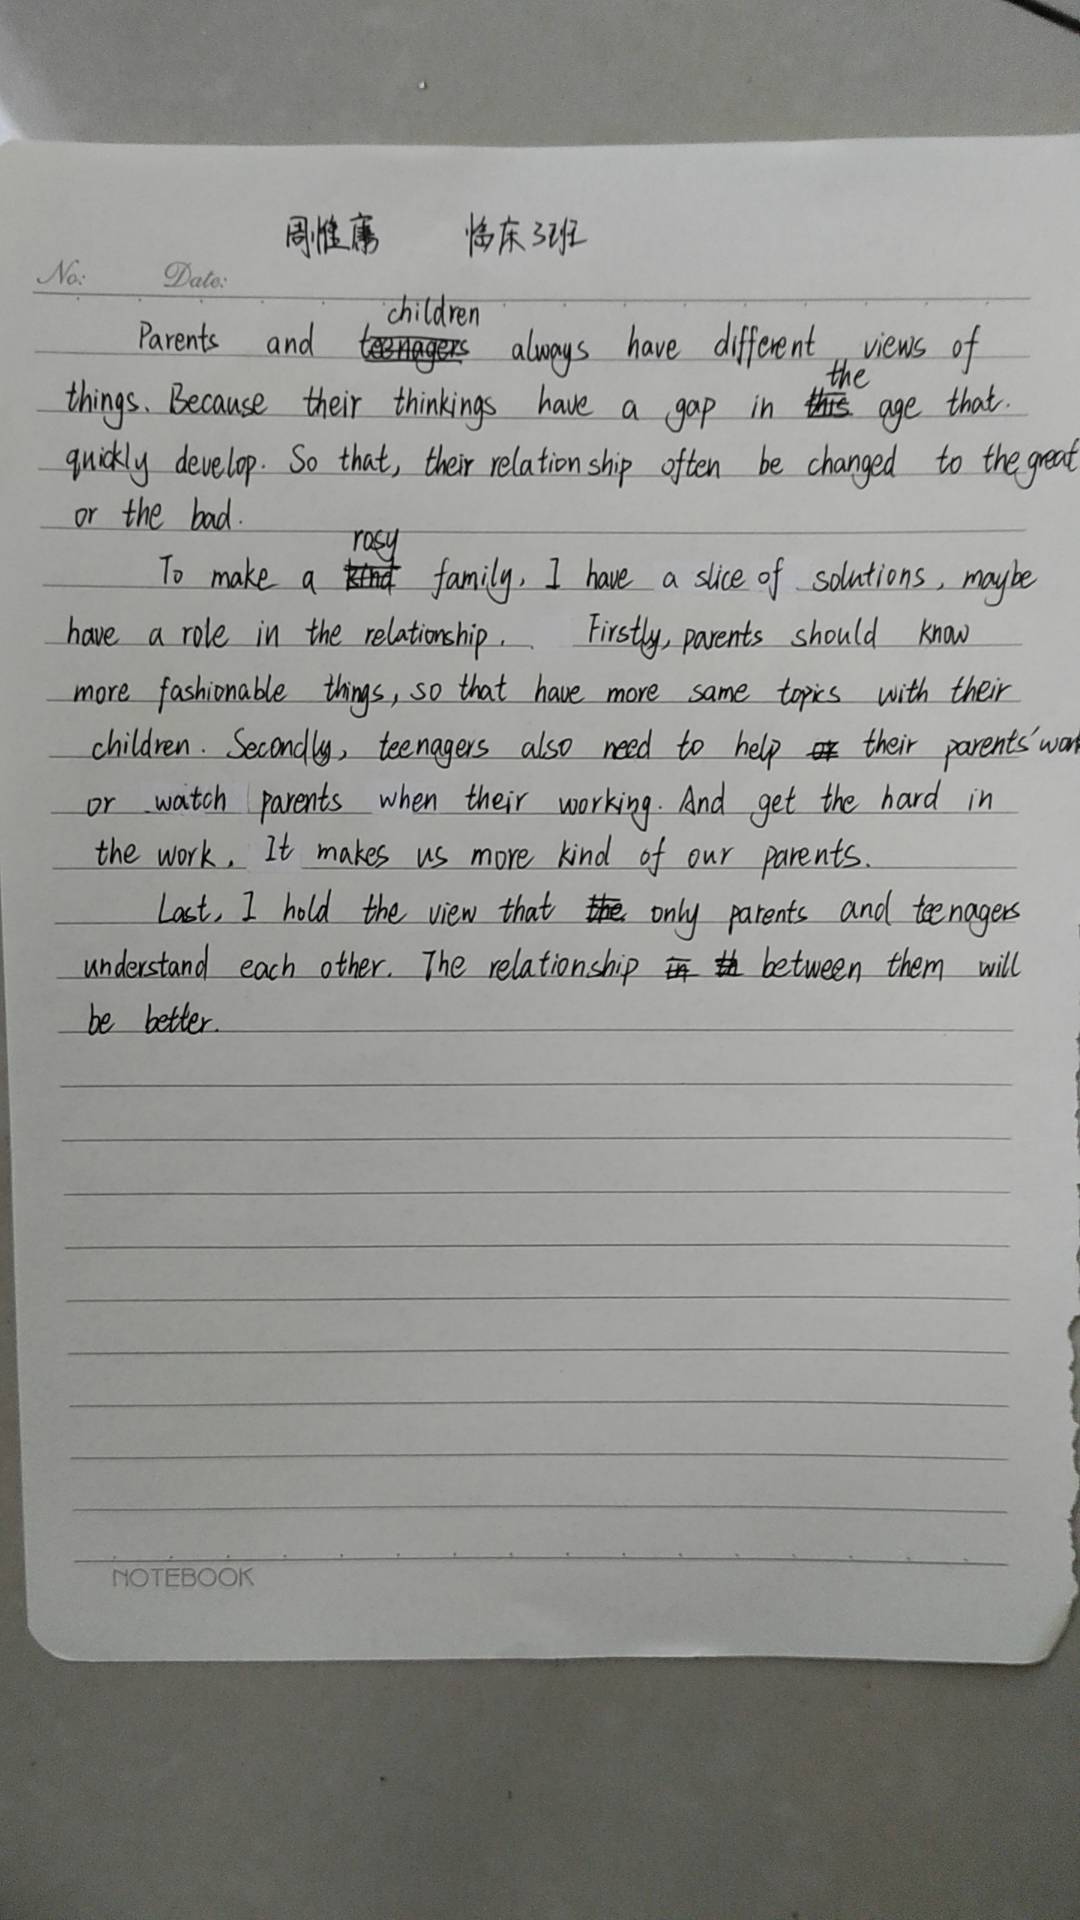 周惟康 临床3班
No: Date:
children
Parents and teenagers always have different views of
the
things. Because their thinkings have a gap in this age that.
quickly develop. So that, their relationship often be changed to the great
or the bad.
rosy
To make a kind family, I have a slice of solutions, maybe
have a role in the relationship. Firstly, parents should know
more fashionable things, so that have more same topics with their
children. Secondly, teenagers also need to help or their parents' work
or watch parents when their working. And get the hard in
the work. It makes us more kind of our parents.
Last, I hold the view that the only parents and teenagers
understand each other. The relationship in th between them will
be better.
NOTEBOOK